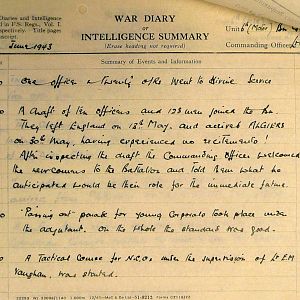 Diaries and Intelligence
ed in F.S. Regs., Vol. I.
respectively. Title pages
nuscript.
June 1943
WAR DIARY
or
INTELLIGENCE SUMMARY
(Erase heading not required)
Unit
Commanding Officer
Summary of Events and Information
One officer & Twenty o/Rs Went to Divine Service
A draft of Ten Officers and 123 men joined the Bn.
They left England on 18th May, and arrived ALGIERS
on 30th May, having experienced no excitements!
After inspecting the draft the Commanding Officer welcomed
the newcomers to the Battalion and told them what he
anticipated would be their role for the immediate future.
Passing out parade for young Corporals took place under
the adjutant. On the whole the standard was good.
A Tactical Course for N.C.Os under the supervision of Lt E.M.
Vaughan, was started.